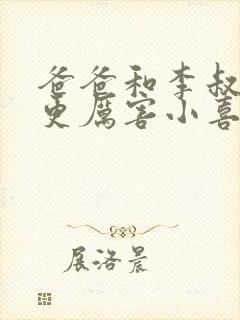 爸爸和李叔
更厲害小喜
展洛晨